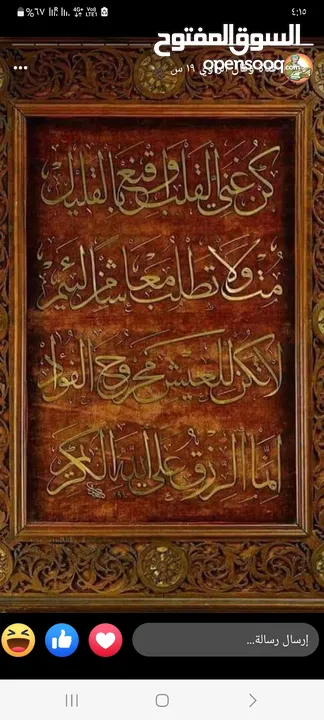 ٤:١٥
%٦٧
4G+
Vo))
LTE1
السوق المفتوح
opensooq.com
١٩ س
كن غني القلب واقنع بالقليل
مت ولا تطلب معاشا من لئيم
لا تكن للعيش مجروح الفؤاد
إنما الرزق على الله الكريم
إرسال رسالة...